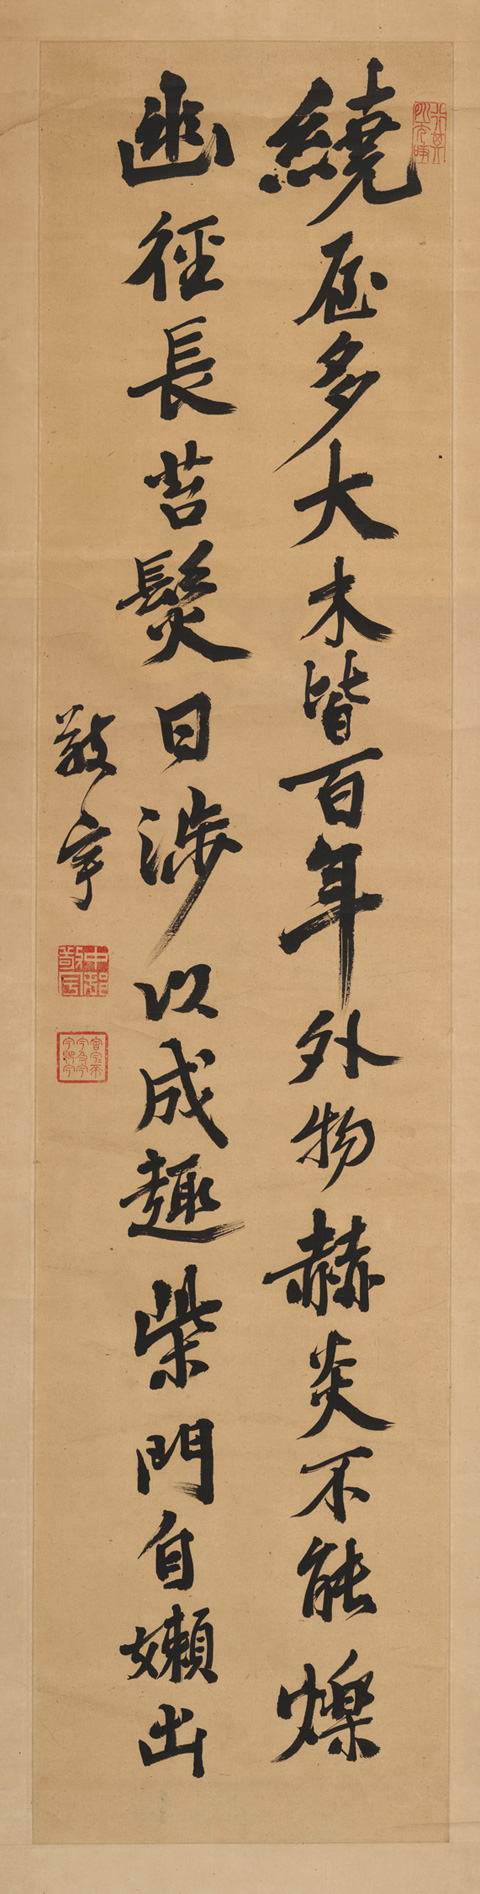 繞屋多大木皆百年外物赫炎不能爍
幽徑長苔髮日涉以成趣柴門自嬾出
敬